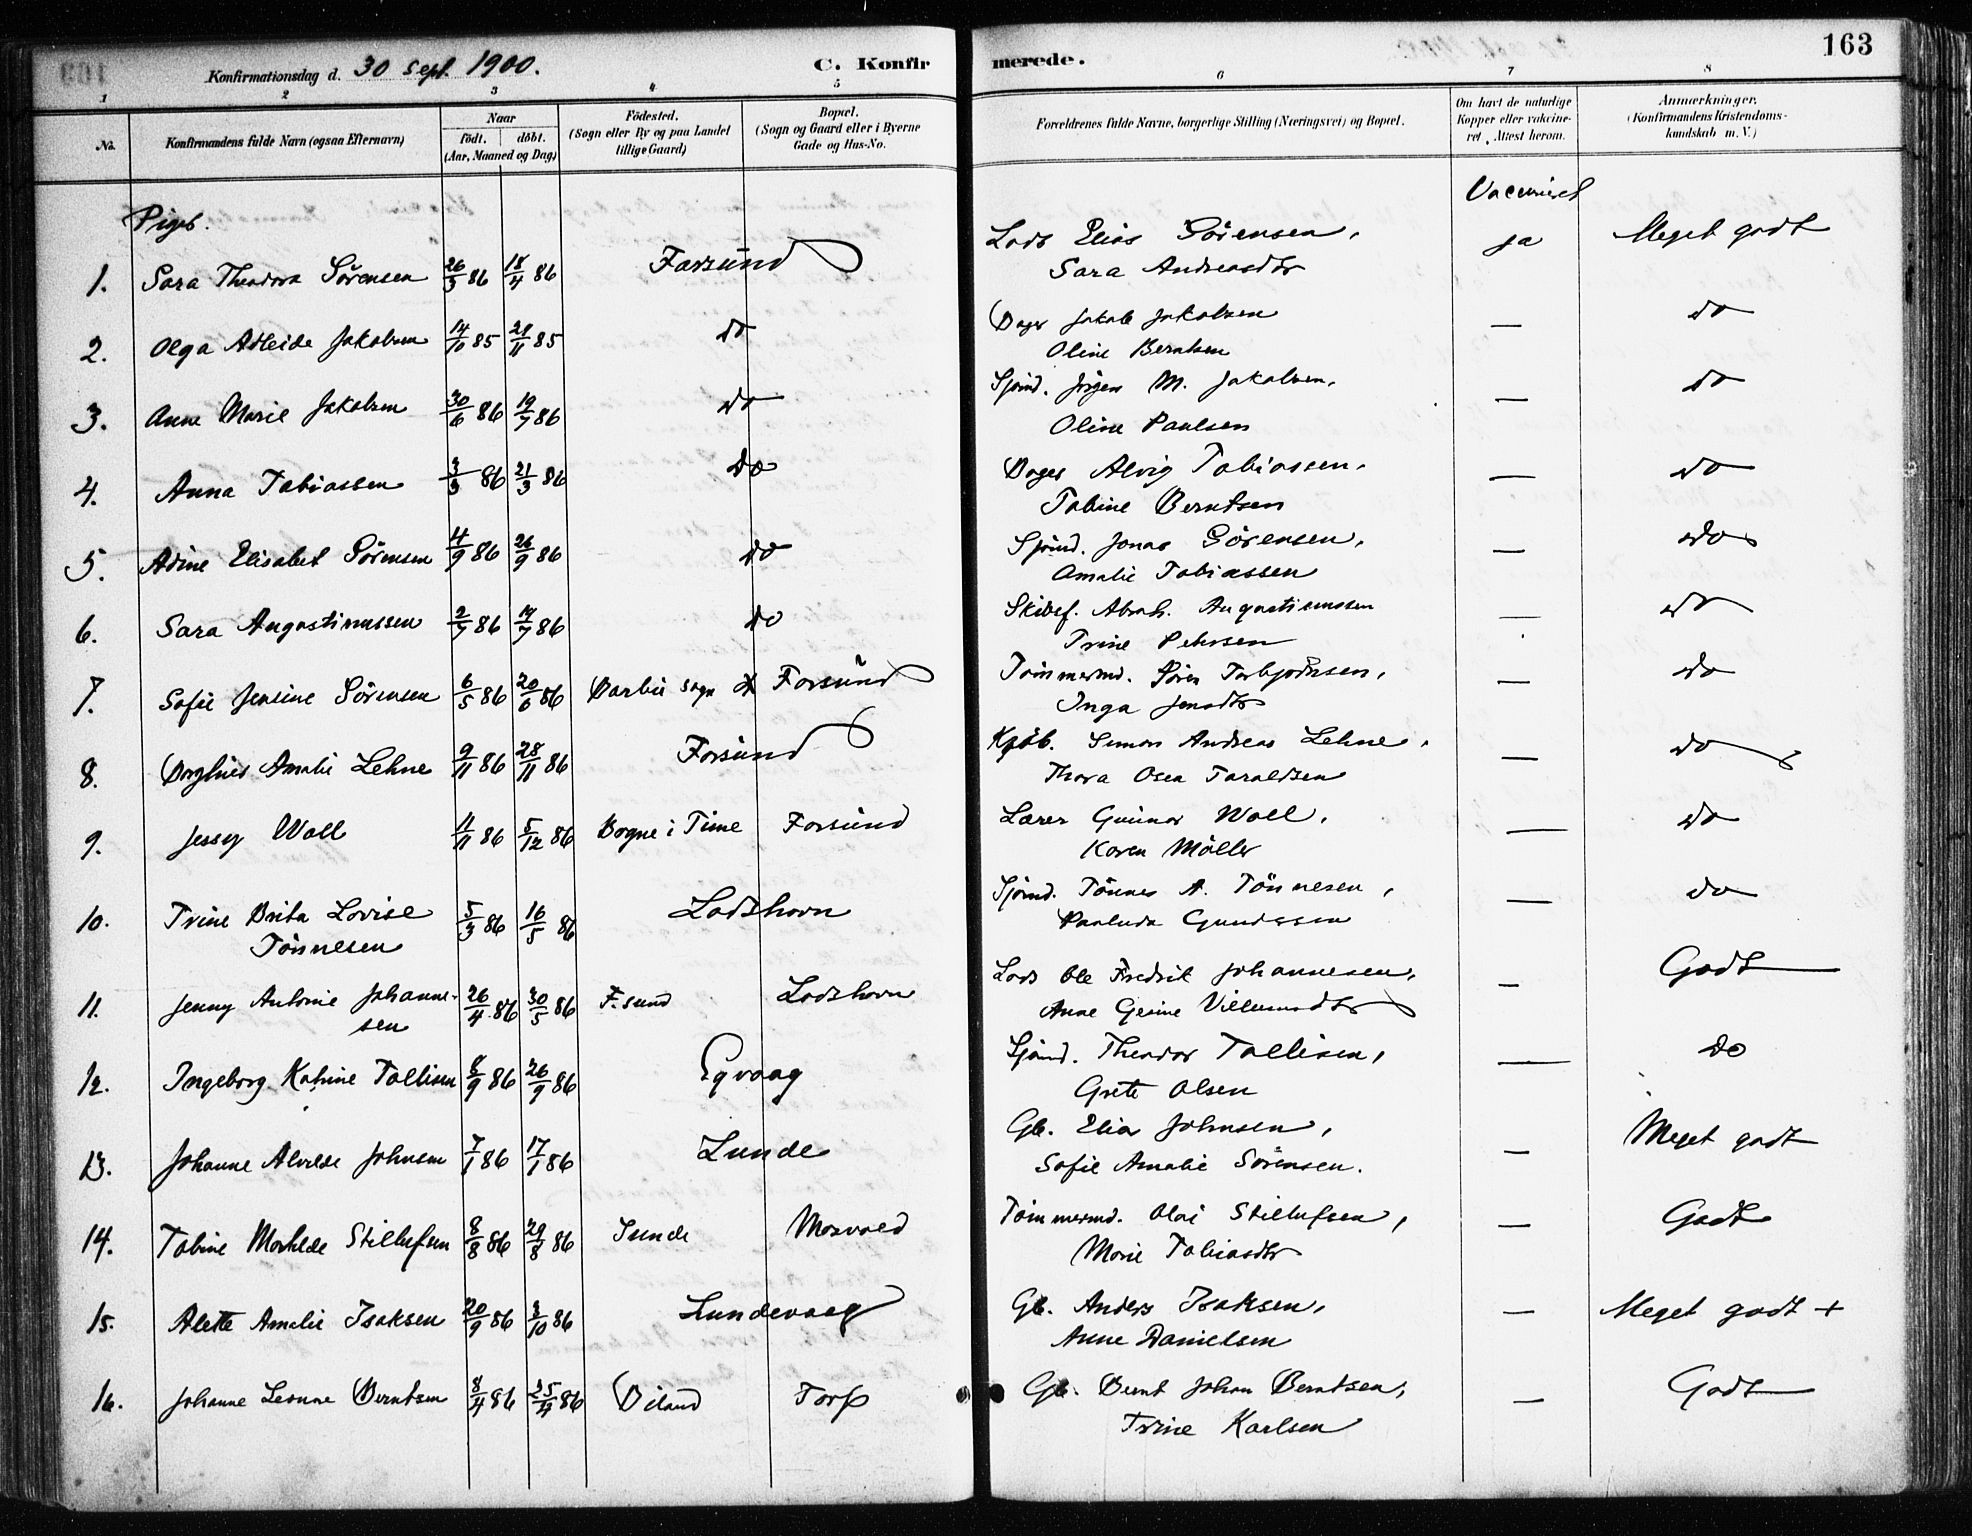 Konfirmationsdag d. 30 Sept. 1900.
C. Konfirmerede.
163
1 2 3 4 5 6 7 8
No.
Konfirmandens fulde Navn (ogsaa Efternavn)
Naar
født. døbt.
(Aar, Maaned og Dag)
Fødested.
(Sogn eller By og paa Landet
tillige Gaard)
Bopæl.
(Sogn og Gaard eller i Byerne
Gade og Hus-No.
Forældrenes fulde Navne, borgerlige Stilling (Næringsvei) og Bopæl.
Om havt de naturlige
Kopper eller vakcine-
ret, Attest herom.
Anmærkninger.
(Konfirmandens Kristendoms-
kundskab m. V.)
Piger.
Vaccineret
1. Sara Theodora Sørensen 26/3 86 18/4 86 Farsund Lods Elias Sørensen, ja Meget godt
Sara Andreasdtr
2. Olga Adleide Jakobsen 14/10 85 21/11 85 do Bager Jakob Jakobsen — do
Oline Berntsen
3. Anne Marie Jakobsen 30/6 86 19/7 86 do Sjømd. Jørgen M. Jakobsen, — do
Oline Paulsen
4. Anna Tobiassen 3/3 86 21/3 86 do Bager Alvig Tobiassen, — do
Tobine Berntsen
5. Adine Elisabet Sørensen 4/9 86 26/9 86 do Sjømd. Jonas Sørensen, — do
Amalie Tobiassen
6. Sara Augustinussen 2/7 86 14/7 86 do Skibsf. Abrah. Augustinussen — do
Trine Petersen
7. Sofie Jensine Sørensen 6/5 86 20/6 86 Barbu Sogn Farsund Tømmermd. Søren Torbjørnsen, — do
Inga Jensdtr
8. Dorthies Amalie Lehne 9/11 86 28/11 86 Farsund Kjøb. Simon Andreas Lehne, — do
Thora Osea Taraldsen
9. Jessy Woll 11/11 86 5/12 86 Bogne i Time Farsund Lærer Gunnar Woll, — do
Karen Møller
10. Trine Brita Lovise 5/3 86 16/5 86 Lodshavn Sjømd. Tønnes A. Tønnesen, — do
Tønnesen Pauluda Gundersen
11. Jenny Antonie Johanne- 26/4 86 30/5 86 F.sund Lodshavn Lods Ole Fredrik Johannesen, — Godt
sen Anne Gesine Villumsdtr
12. Ingeborg Katrine Tollisen 8/9 86 26/9 86 Eqvaag Sjømd. Theodor Tollisen, — do
Grete Olsen
13. Johanne Alvilde Johnsen 7/1 86 17/1 86 Lunde Gb. Elias Johnsen, — Meget godt
Sofie Amalie Sørensen.
14. Tobine Mathilde Stillufsen 8/8 86 29/8 86 Sunde Mosvold Tømmermd. Olai Stillufsen, — Godt
Marie Tobiasdtr
15. Alette Amalie Isaksen 20/9 86 3/10 86 Lundevaag Gb. Anders Isaksen, — Meget godt +
Anne Danielsen
16. Johanne Leonne Berntsen 8/4 86 25/4 86 Biland Torp Gb. Bernt Johan Berntsen, — Godt
Trine Karlsen